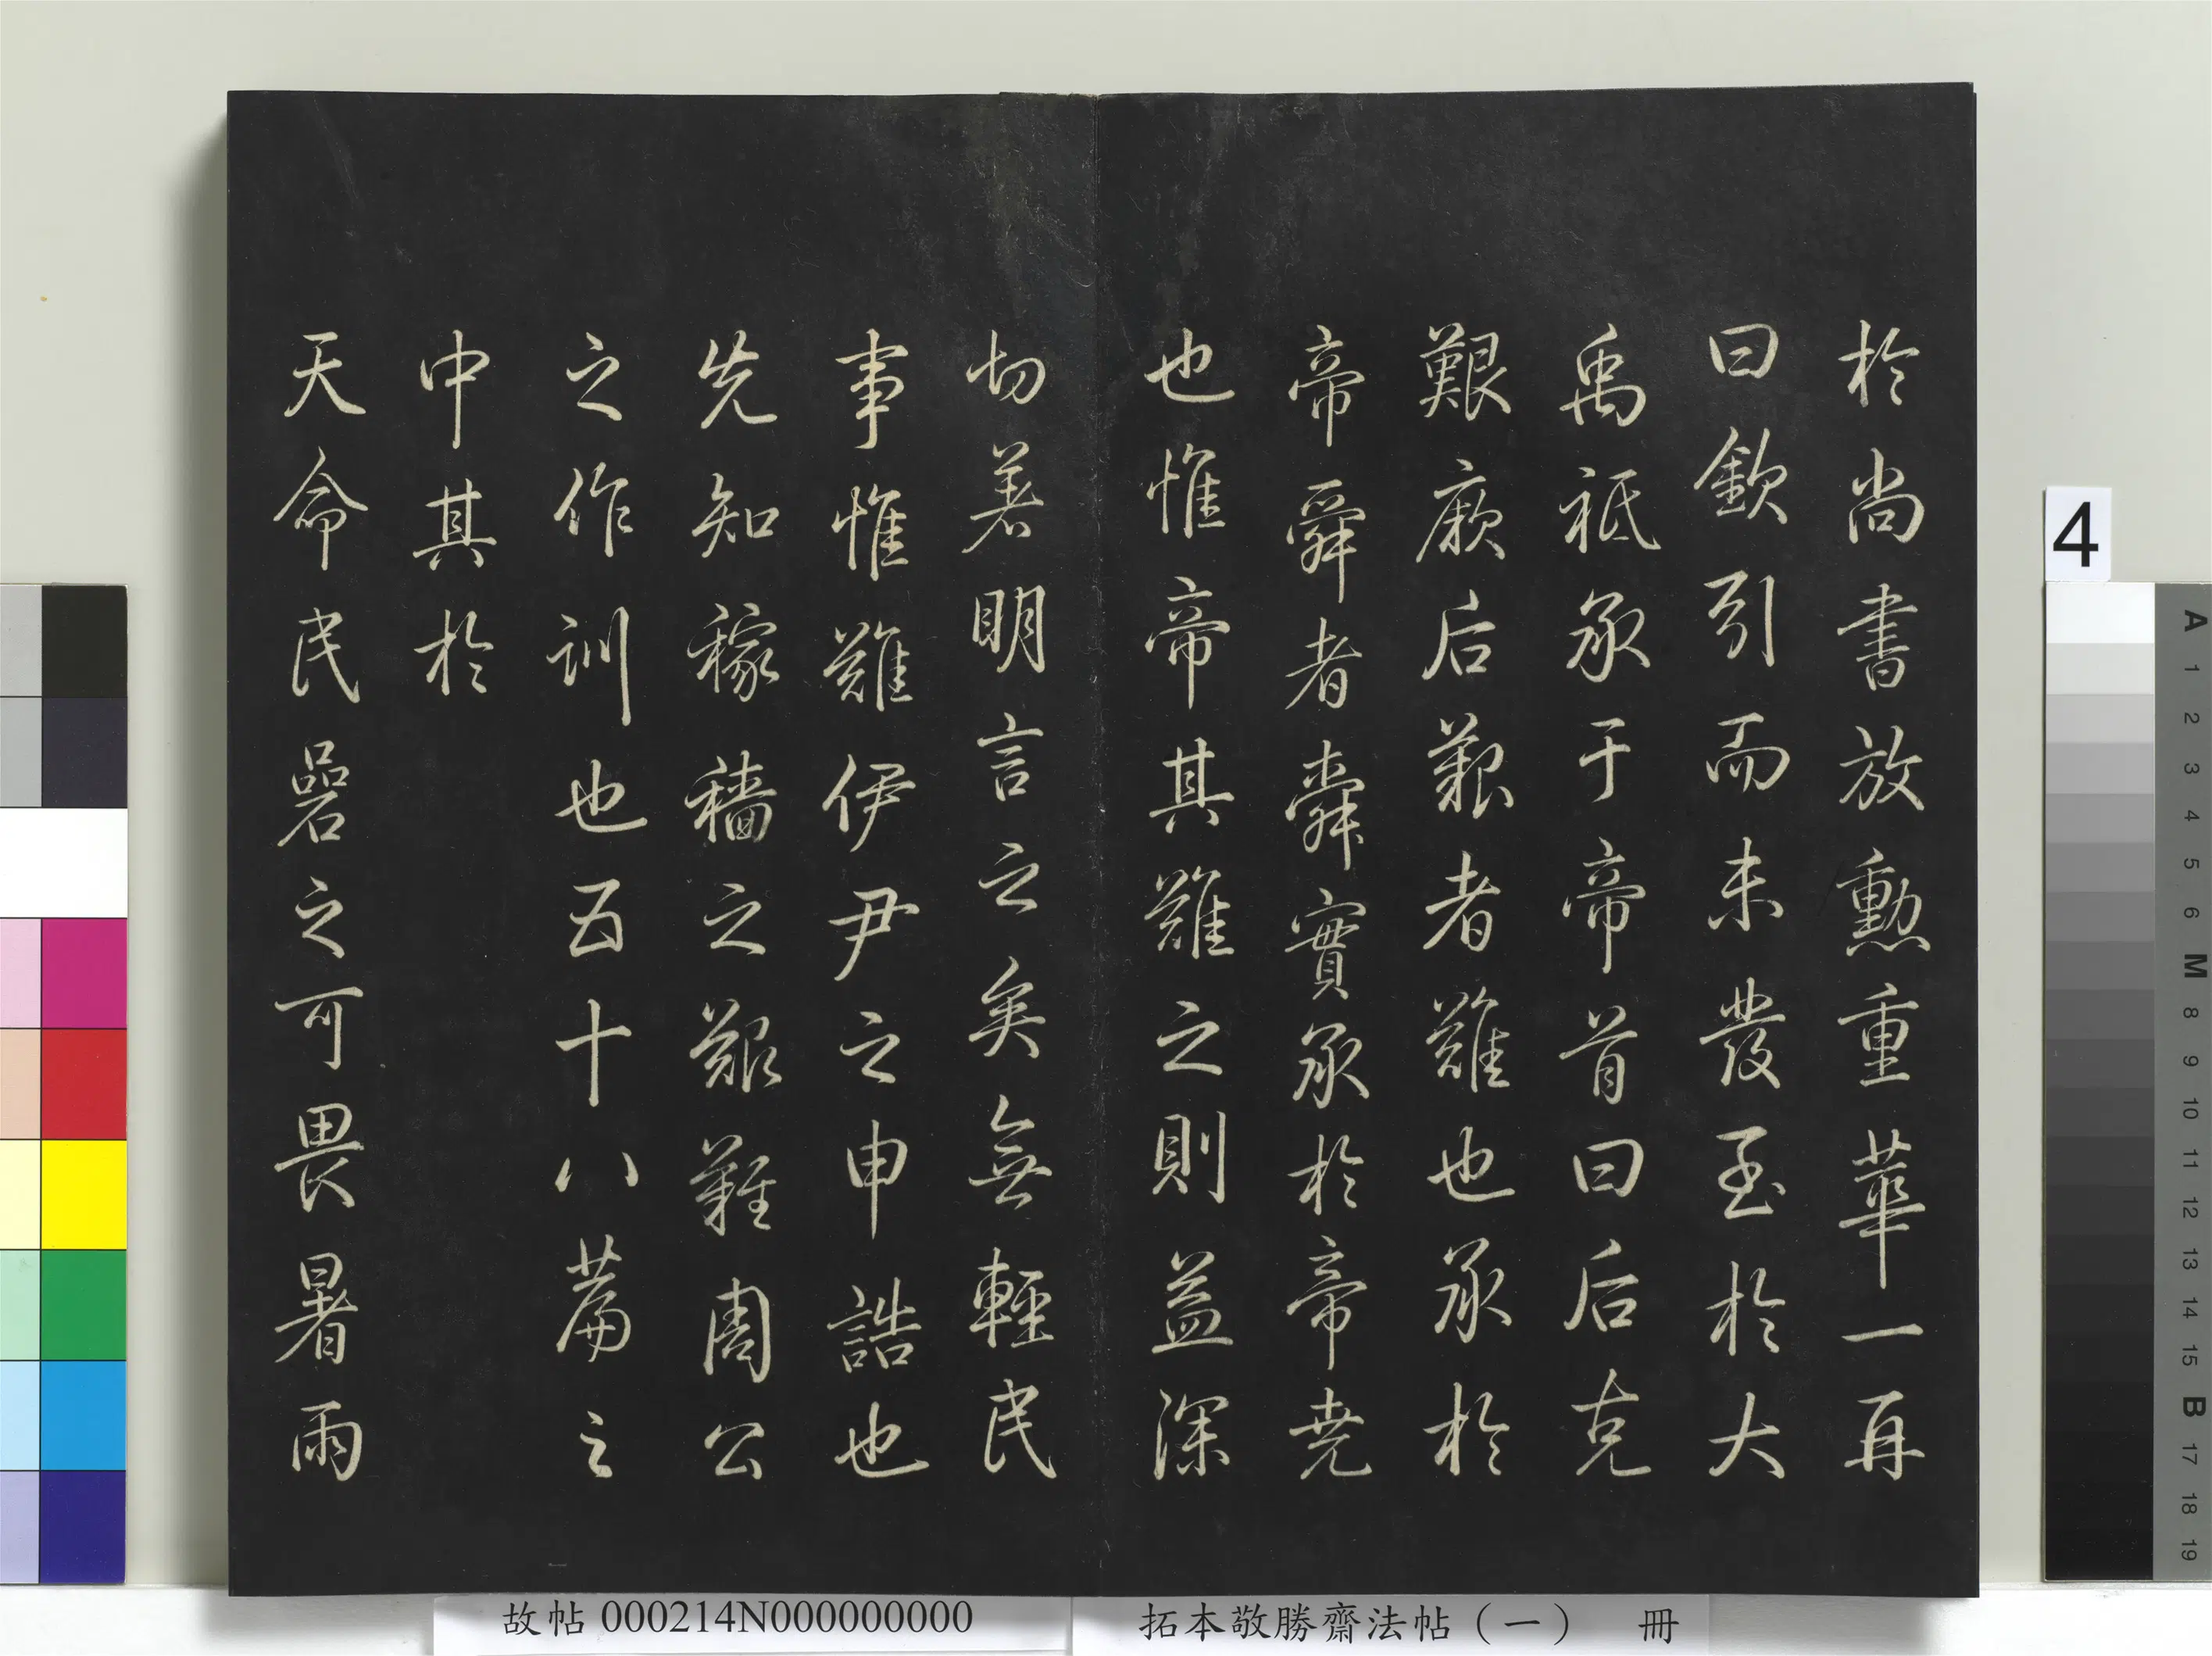 於尚書放勲重華一再
曰欽引而未發至於大
禹祗承于帝首曰后克
艱厥后艱者難也承於
帝舜者舜實承於帝堯
也惟帝其難之則益深
切著明言之矣無輕民
事惟難伊尹之申誥也
先知稼穡之艱難周公
之作訓也五十八篇之
中其於
天命民碞之可畏暑雨
4
A 1 2 3 4 5 6 M 8 9 10 11 12 13 14 15 B 17 18 19
故帖 000214N000000000
拓本敬勝齋法帖（一） 冊